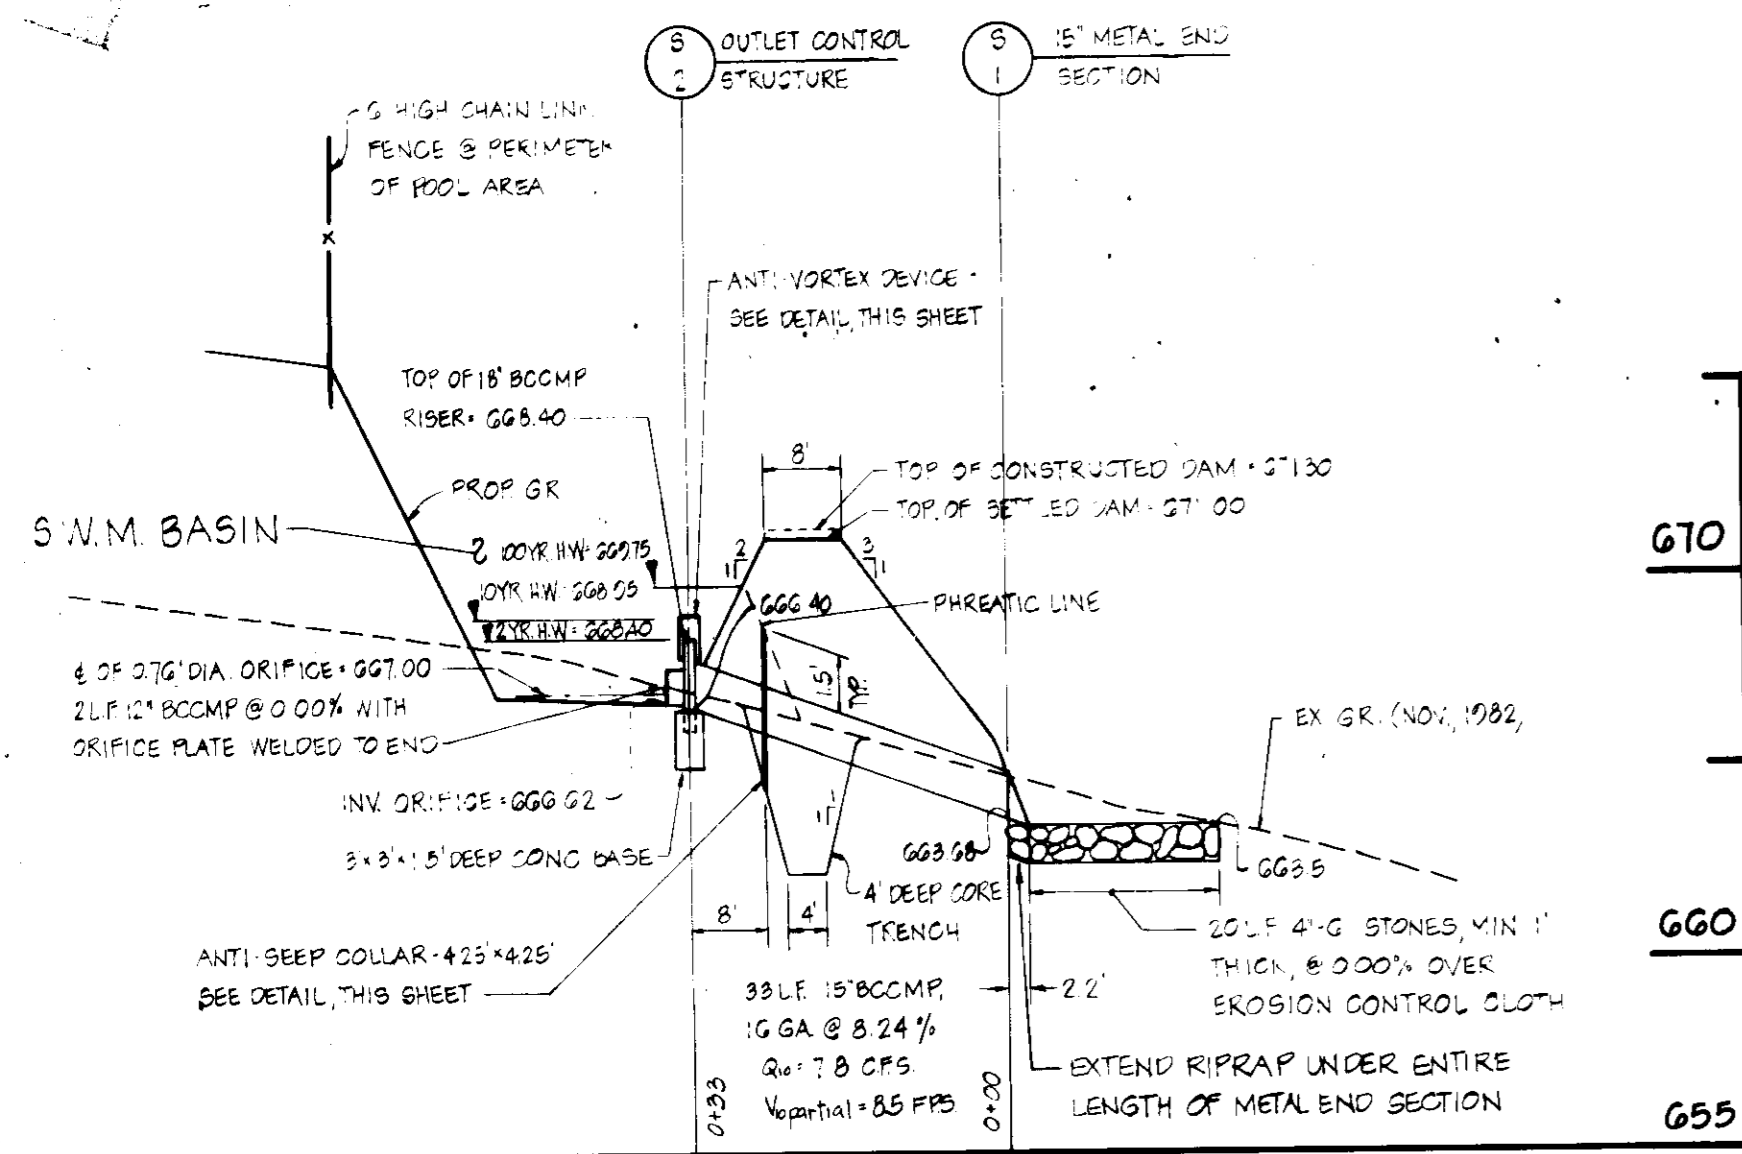 S
2
OUTLET CONTROL
STRUCTURE
S
1
15" METAL END
SECTION
6 HIGH CHAIN LINK
FENCE @ PERIMETER
OF POOL AREA
x
ANTI-VORTEX DEVICE -
SEE DETAIL, THIS SHEET
TOP OF 18" BCCMP
RISER = 668.40
8'
TOP OF CONSTRUCTED DAM = 671.30
TOP OF SETTLED DAM = 671.00
PROP. GR
S.W.M. BASIN
100YR. H.W. = 669.75
10YR. H.W. = 668.95
2YR. H.W. = 668.40
2
1
3
1
666.40
PHREATIC LINE
670
℄ OF 0.76' DIA. ORIFICE = 667.00
2 L.F. 12" BCCMP @ 0.00% WITH
ORIFICE PLATE WELDED TO END
1.5'
TYP.
EX. GR. (NOV., 1982)
INV. ORIFICE = 666.62
3'x3'x1.5' DEEP CONC BASE
1
1
663.68
663.5
4' DEEP CORE
TRENCH
8'
4'
ANTI-SEEP COLLAR - 4.25' x 4.25'
SEE DETAIL, THIS SHEET
20 L.F. 4"-6" STONES, MIN 1'
THICK, @ 0.00% OVER
EROSION CONTROL CLOTH
660
33 L.F. 15" BCCMP,
16 GA. @ 8.24 %
Q10 = 7.8 C.F.S.
V10 partial = 8.5 FPS
2.2'
EXTEND RIPRAP UNDER ENTIRE
LENGTH OF METAL END SECTION
0+33
0+00
655